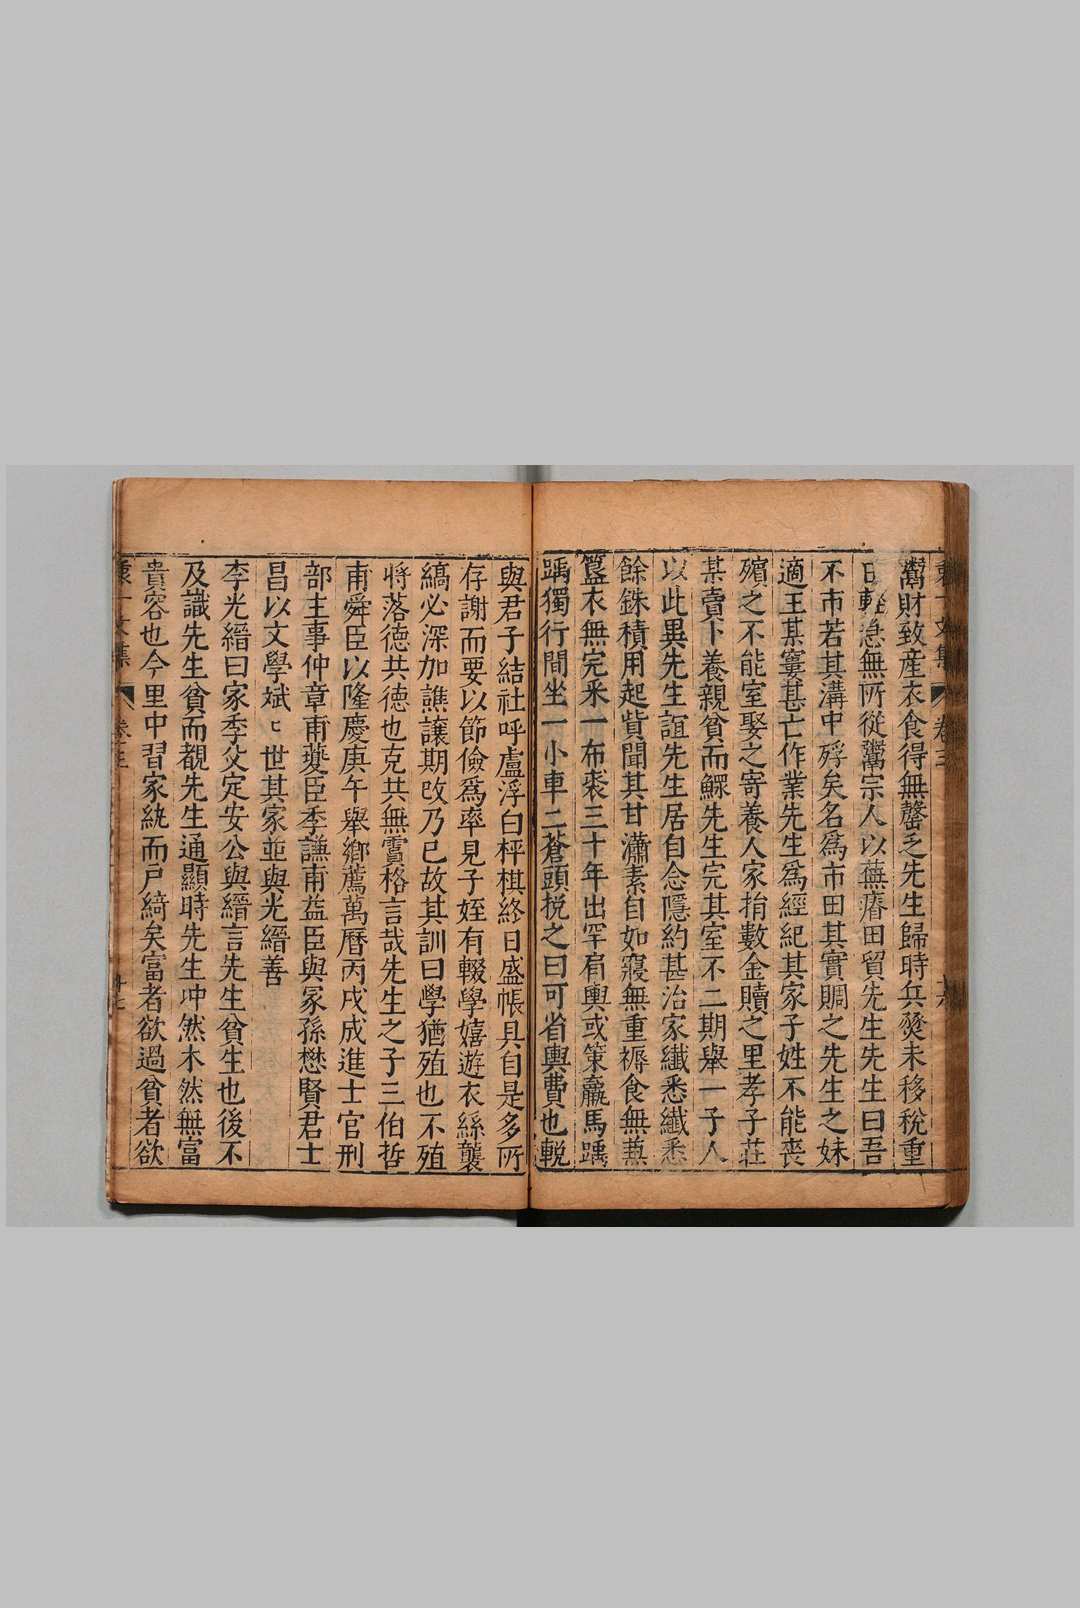 鬻財致産衣食得無罄乏先生歸時兵燹未移稅重
日輕急無所從鬻宗人以蕪瘠田貿先生先生曰吾
不市若其溝中殍矣名爲市田其實賙之先生之妹
適王某窶甚亡作業先生爲經紀其家子姓不能喪
殯之不能室娶之寄養人家捐數金贖之里孝子莊
某賣卜養親貧而鰥先生完其室不二期舉一子人
以此異先生誼先生居自念隱約甚治家纖悉纖悉
餘銖積用起貲聞其甘瀟素自如寢無重褥食無蒹
簋衣無完釆一布裘三十年出罕肩輿或策羸馬踽
踽獨行間坐一小車二蒼頭挩之曰可省輿費也輗
與君子結社呼盧浮白枰棋終日盛帳具自是多所
存謝而要以節儉爲率見子姪有輟學嬉遊衣絲襲
縞必深加譙讓期改乃已故其訓曰學猶殖也不殖
將落德共德也克共無實格言哉先生之子三伯哲
甫舜臣以隆慶庚午舉鄉薦萬曆丙戌成進士官刑
部主事仲章甫䕫臣季謙甫益臣與冢孫懋賢君士
昌以文學斌〻世其家並與光縉善
李光縉曰家季父定安公與縉言先生貧生也後不
及識先生貧而覩先生通顯時先生冲然木然無富
貴容也今里中習家紈而戸綺矣富者欲過貧者欲
卷三